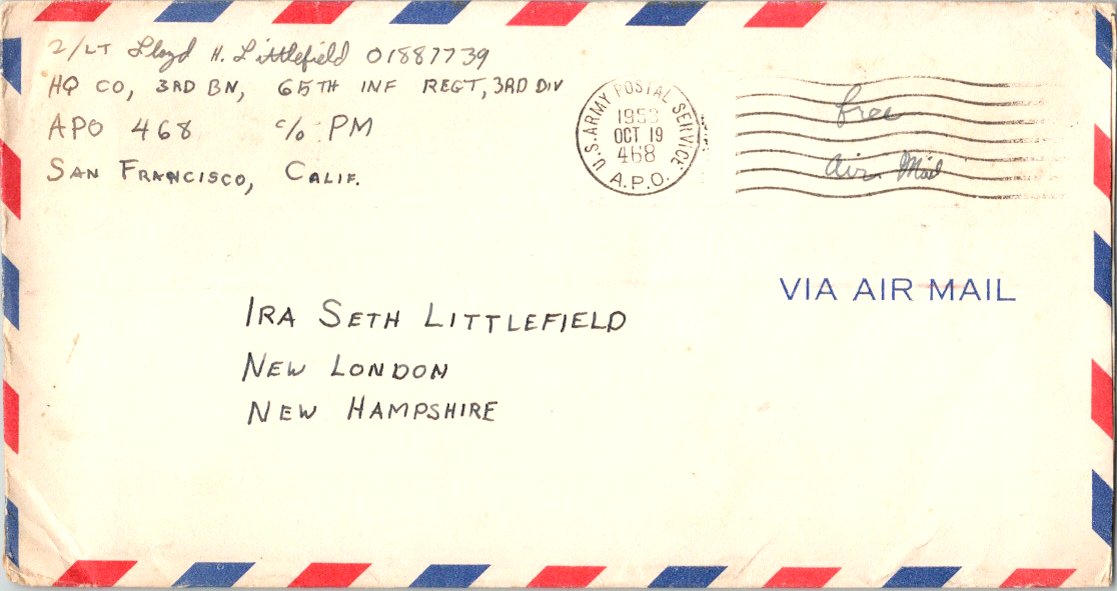 2/LT Lloyd H. Littlefield 01887739
HQ CO, 3RD BN, 65TH INF REGT, 3RD DIV
APO 468 c/o PM
SAN FRANCISCO, CALIF.
U.S. ARMY POSTAL SERVICE
1953
OCT 19
468
A.P.O.
Free
Air Mail
VIA AIR MAIL
IRA SETH LITTLEFIELD
NEW LONDON
NEW HAMPSHIRE